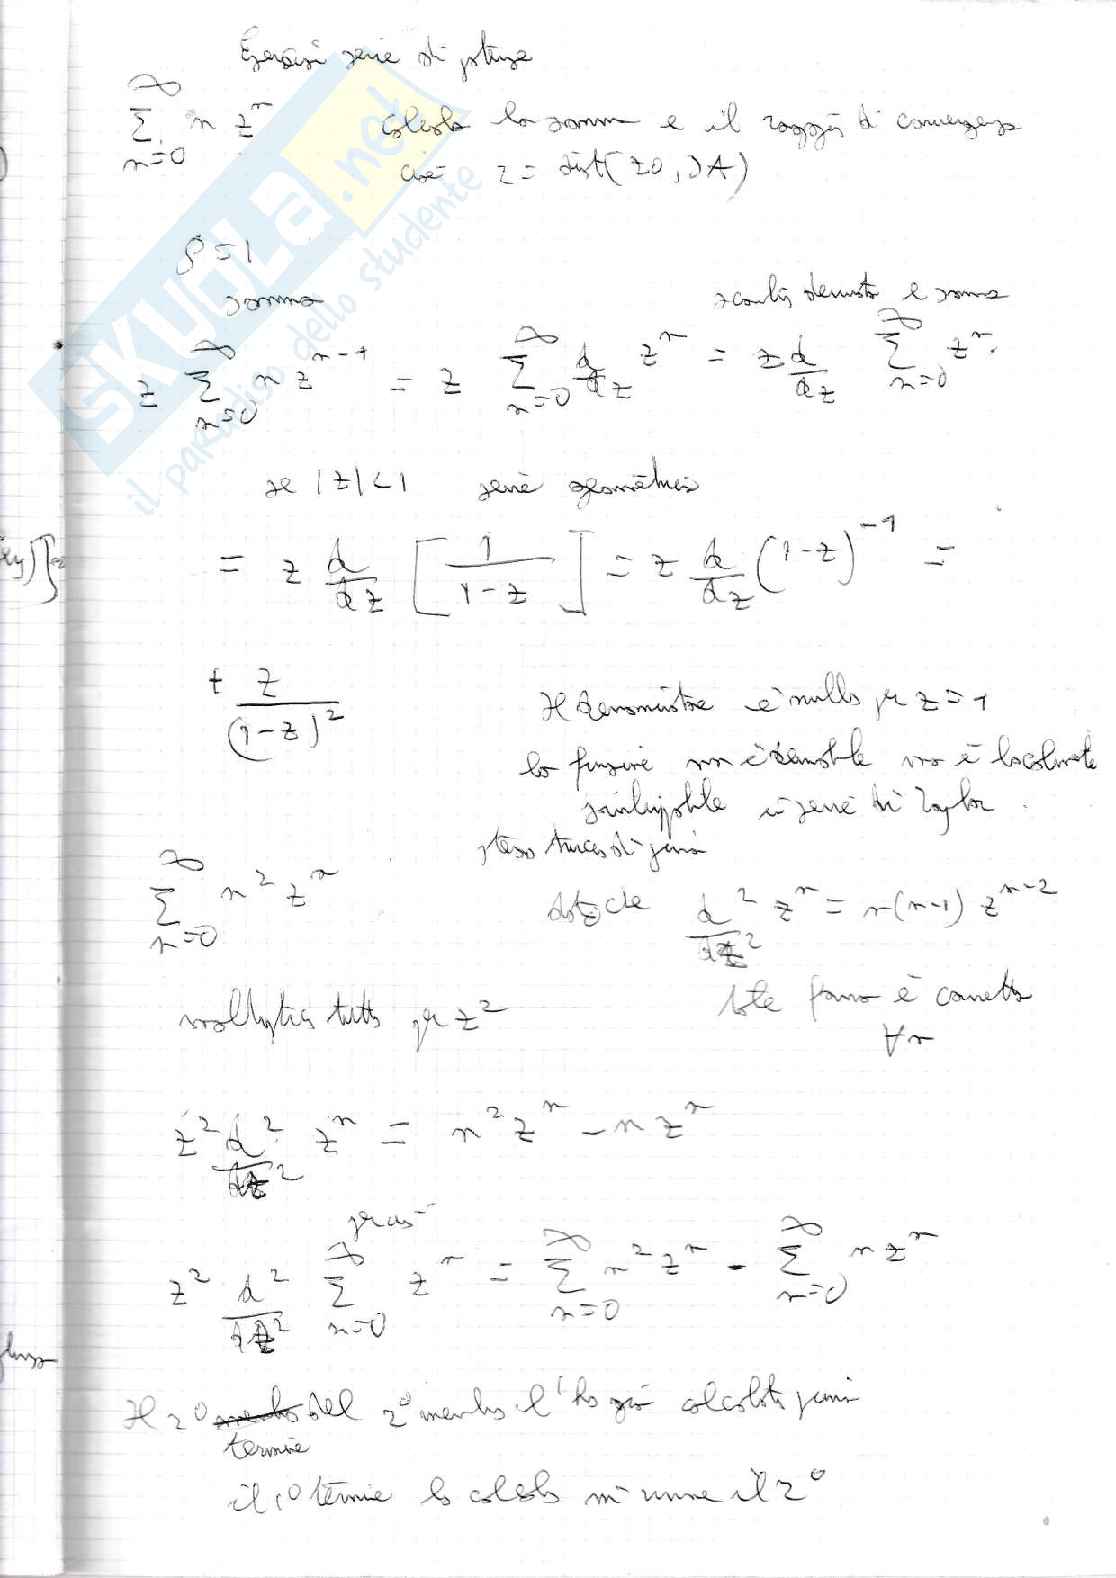 Esercizi serie di potenze
∞
∑ n zⁿ calcola la somma e il raggio di convergenza
n=0
cioè r = dist(z0, ∂A)
ρ = 1
somma
scambio derivata e somma
z ∑_{n=0}^{∞} n z^{n-1} = z ∑_{n=0}^{∞} d/dz zⁿ = z d/dz ∑_{n=0}^{∞} zⁿ
se |z| < 1 serie geometrica
= z d/dz [1/(1-z)] = z d/dz (1-z)^{-1} =
+ z/(1-z)²
Il denominatore è nullo per z = 1
la funzione non è derivabile ma è localmente
sviluppabile in serie di Taylor.
stesso trucco di prima
∑_{n=0}^{∞} n² zⁿ
dato che d²/dz² zⁿ = n(n-1) z^{n-2}
tale formula è corretta
∀n
moltiplica tutto per z²
z² d²/dz² zⁿ = n² zⁿ - n zⁿ
per cui
z² d²/dz² ∑_{n=0}^{∞} zⁿ = ∑_{n=0}^{∞} n² zⁿ - ∑_{n=0}^{∞} n zⁿ
Il 2° del 2° membro l'ho già calcolato prima
termine
il 1° termine lo calcolo il 2°
SKUOLA.net
il paradiso dello studente